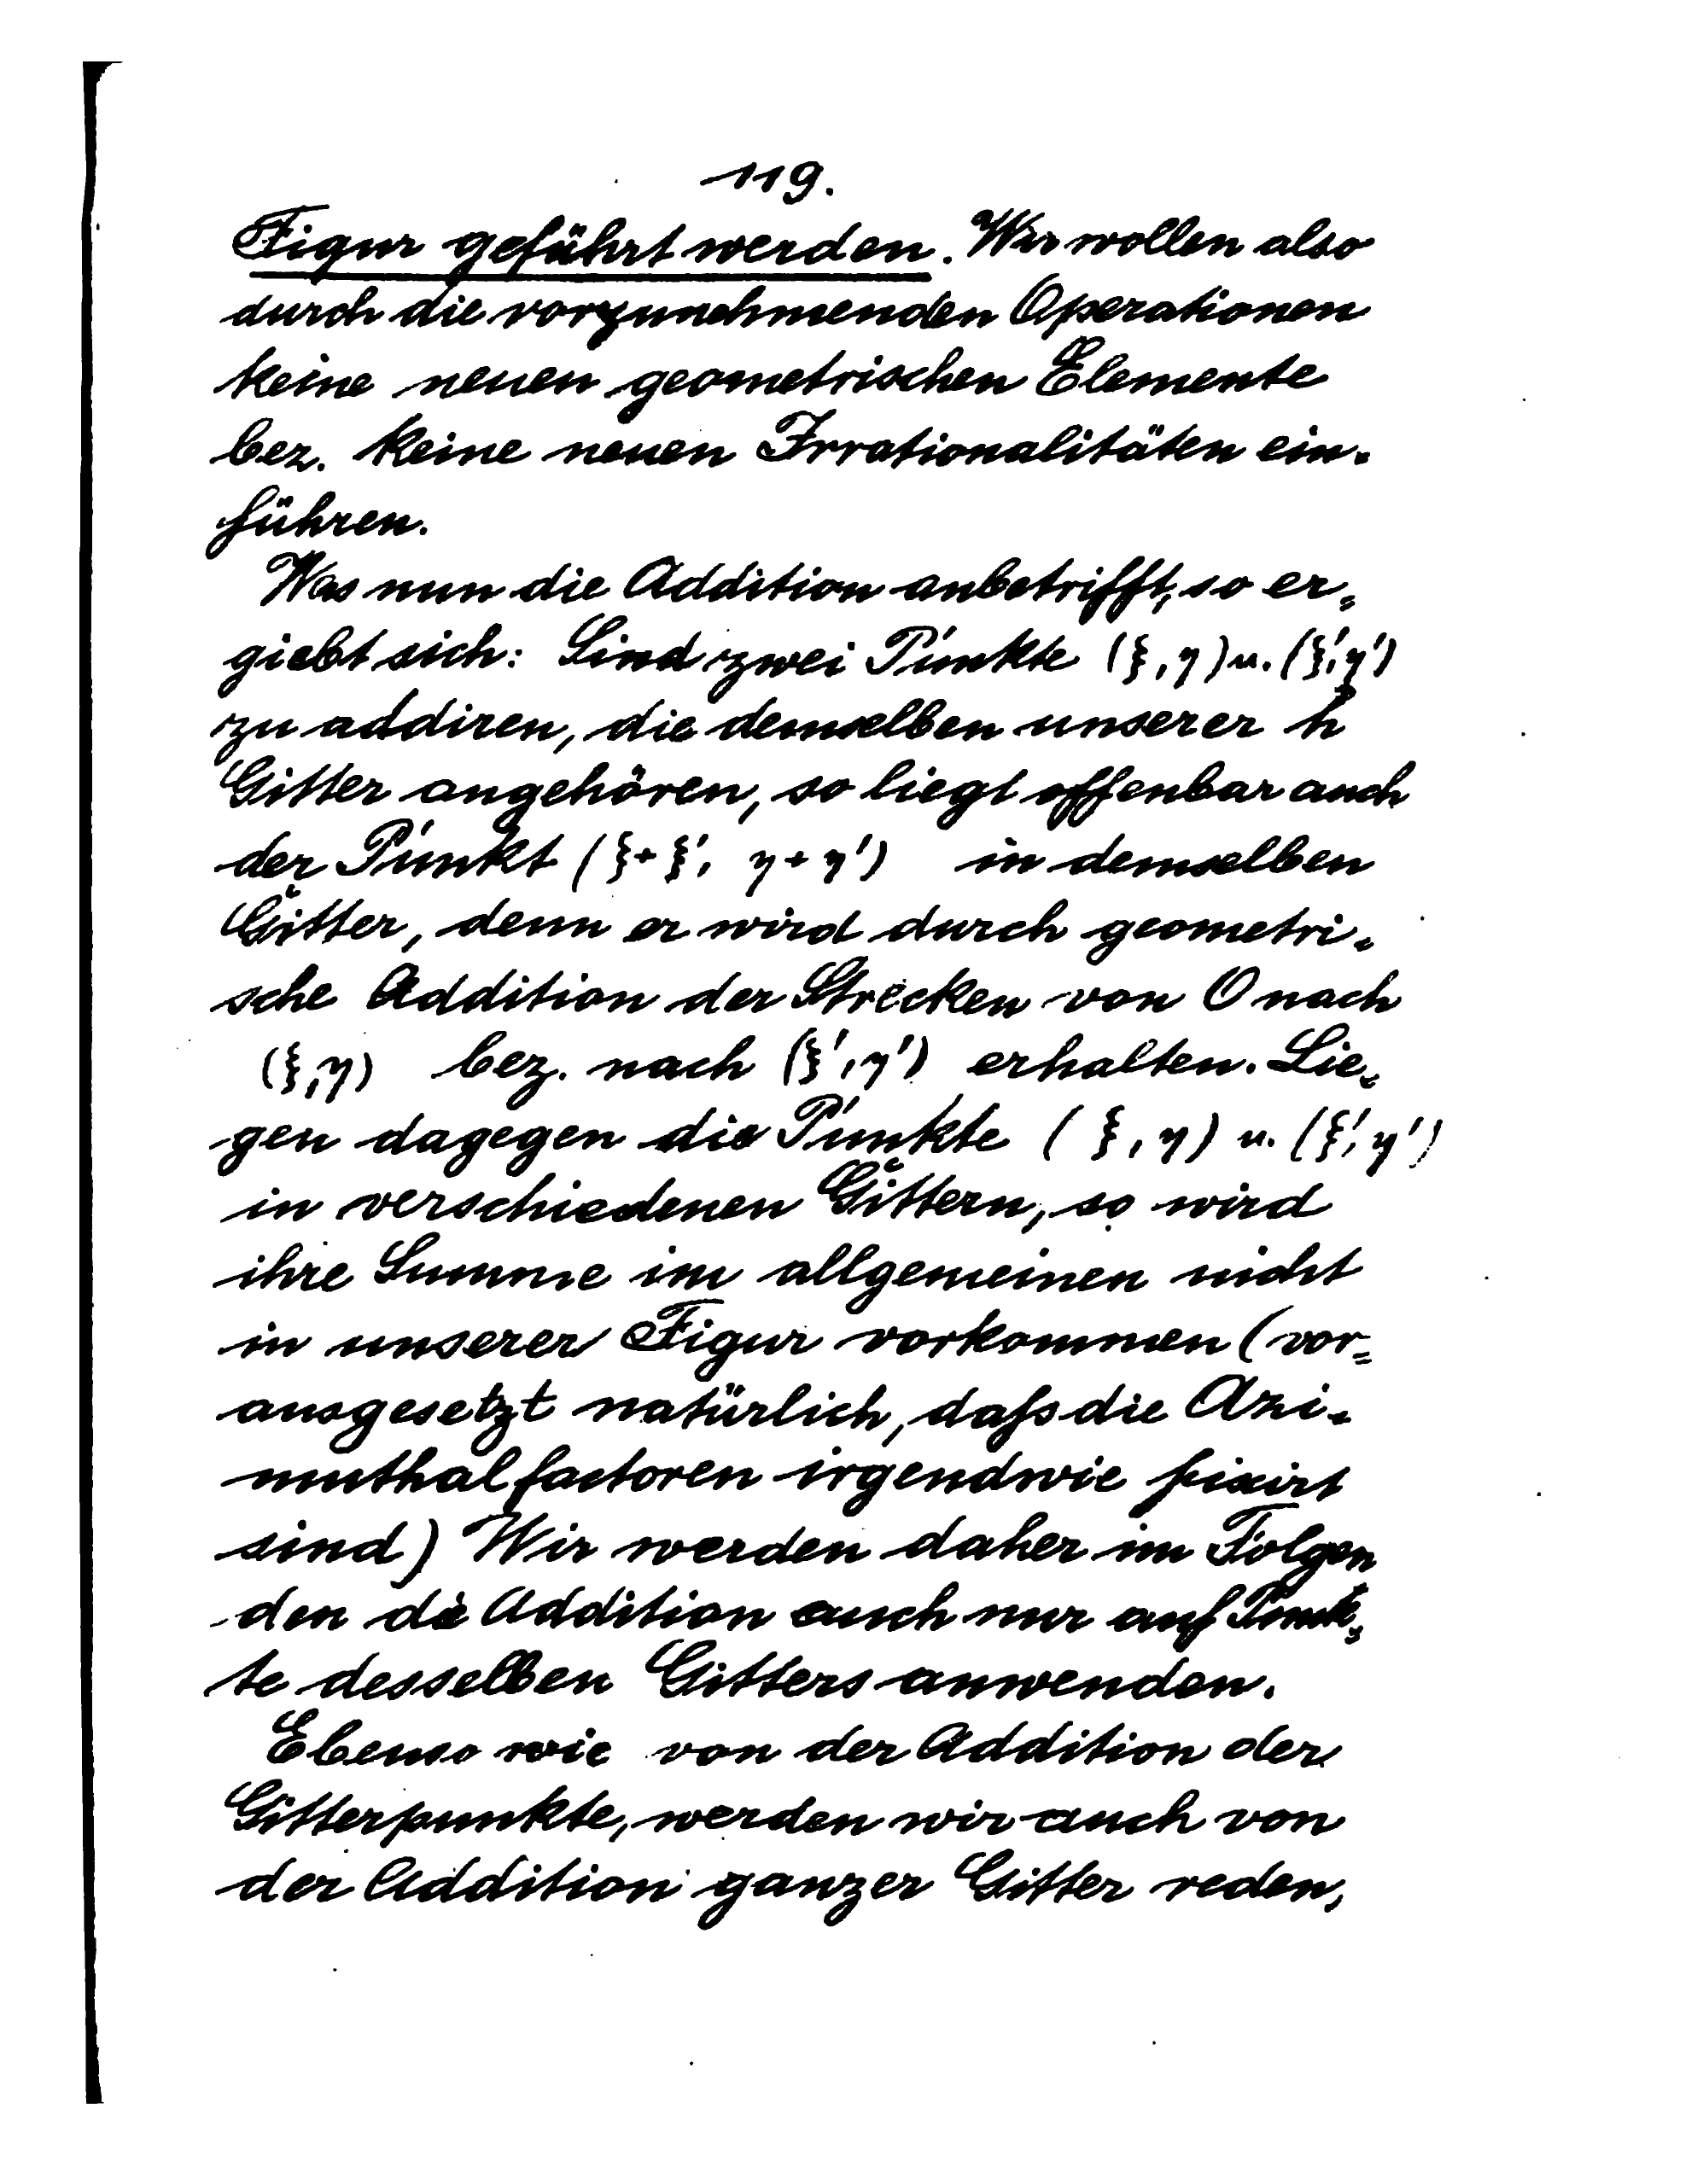 119.
Figur geführt werden. Wir wollen also
durch die vorzunehmenden Operationen
keine neuen geometrischen Elemente
bez. keine neuen Irrationalitäten ein-
führen.
Was nun die Addition anbetrifft, so er-
giebt sich: Sind zwei Punkte (ξ, η) u. (ξ', η')
zu addiren, die demselben unserer h
Gitter angehören, so liegt offenbar auch
der Punkt (ξ + ξ', η + η') in demselben
Gitter, denn er wird durch geometri-
sche Addition der Strecken von O nach
(ξ, η) bez. nach (ξ', η') erhalten. Lie-
gen dagegen die Punkte (ξ, η) u. (ξ', η')
in verschiedenen Gittern, so wird
ihre Summe im allgemeinen nicht
in unserer Figur vorkommen (vor-
ausgesetzt natürlich, dafs die Azi-
muthalfactoren irgendwie fixirt
sind) Wir werden daher im Folgen
den die Addition auch nur auf Punk-
te desselben Gitters anwenden.
Ebenso wie von der Addition der
Gitterpunkte, werden wir auch von
der Addition ganzer Gitter reden,